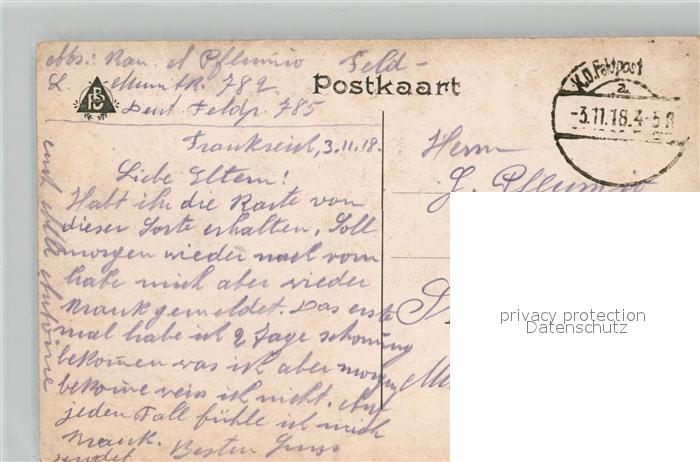 Abs.: Kan. A Pflumio Feld-
L. Mun. K. 789 Postkaart
Deut. Feldp. 785
K.D. Feldpost
a
-3.11.18. 4-5 N
Frankreich, 3.11.18.
Liebe Eltern!
Habt ihr die Karte von
dieser Sorte erhalten. Soll
morgen wieder nach vorn
habe mich aber wieder
krank gemeldet. Das erste
mal habe ich 2 Tage schonung
bekommen was ich aber morgen
bekomme weis ich nicht. Auf
jeden Fall fühle ich mich
krank. Besten Gruss
sendet
euch alle Antoine
Herrn
J. Pflumio
privacy protection
Datenschutz